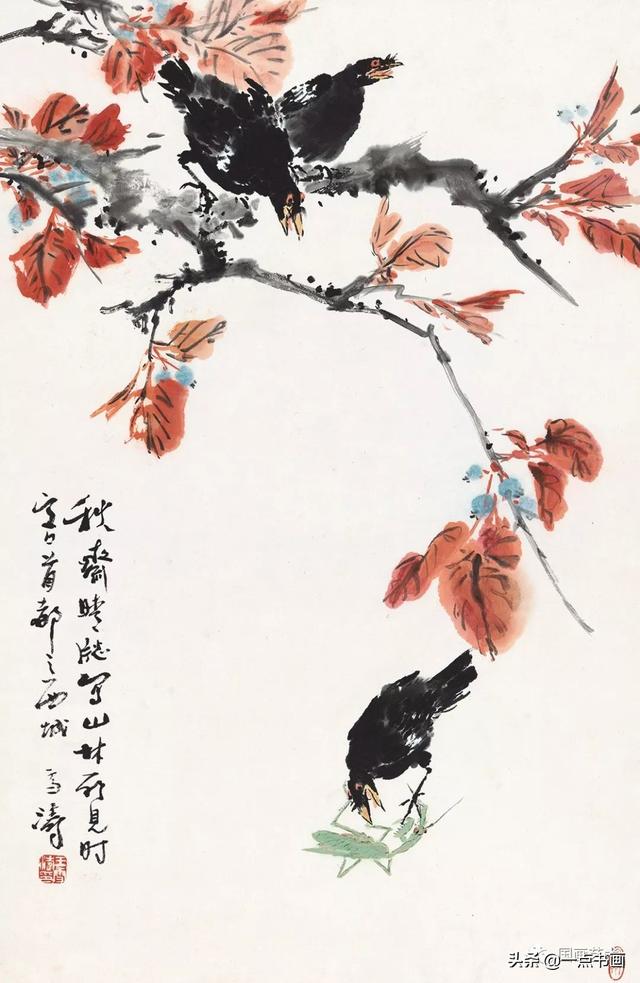 秋齋晴牕写山林所見时
寓首都之西城 雪濤
王雪濤印
头条@一点书画